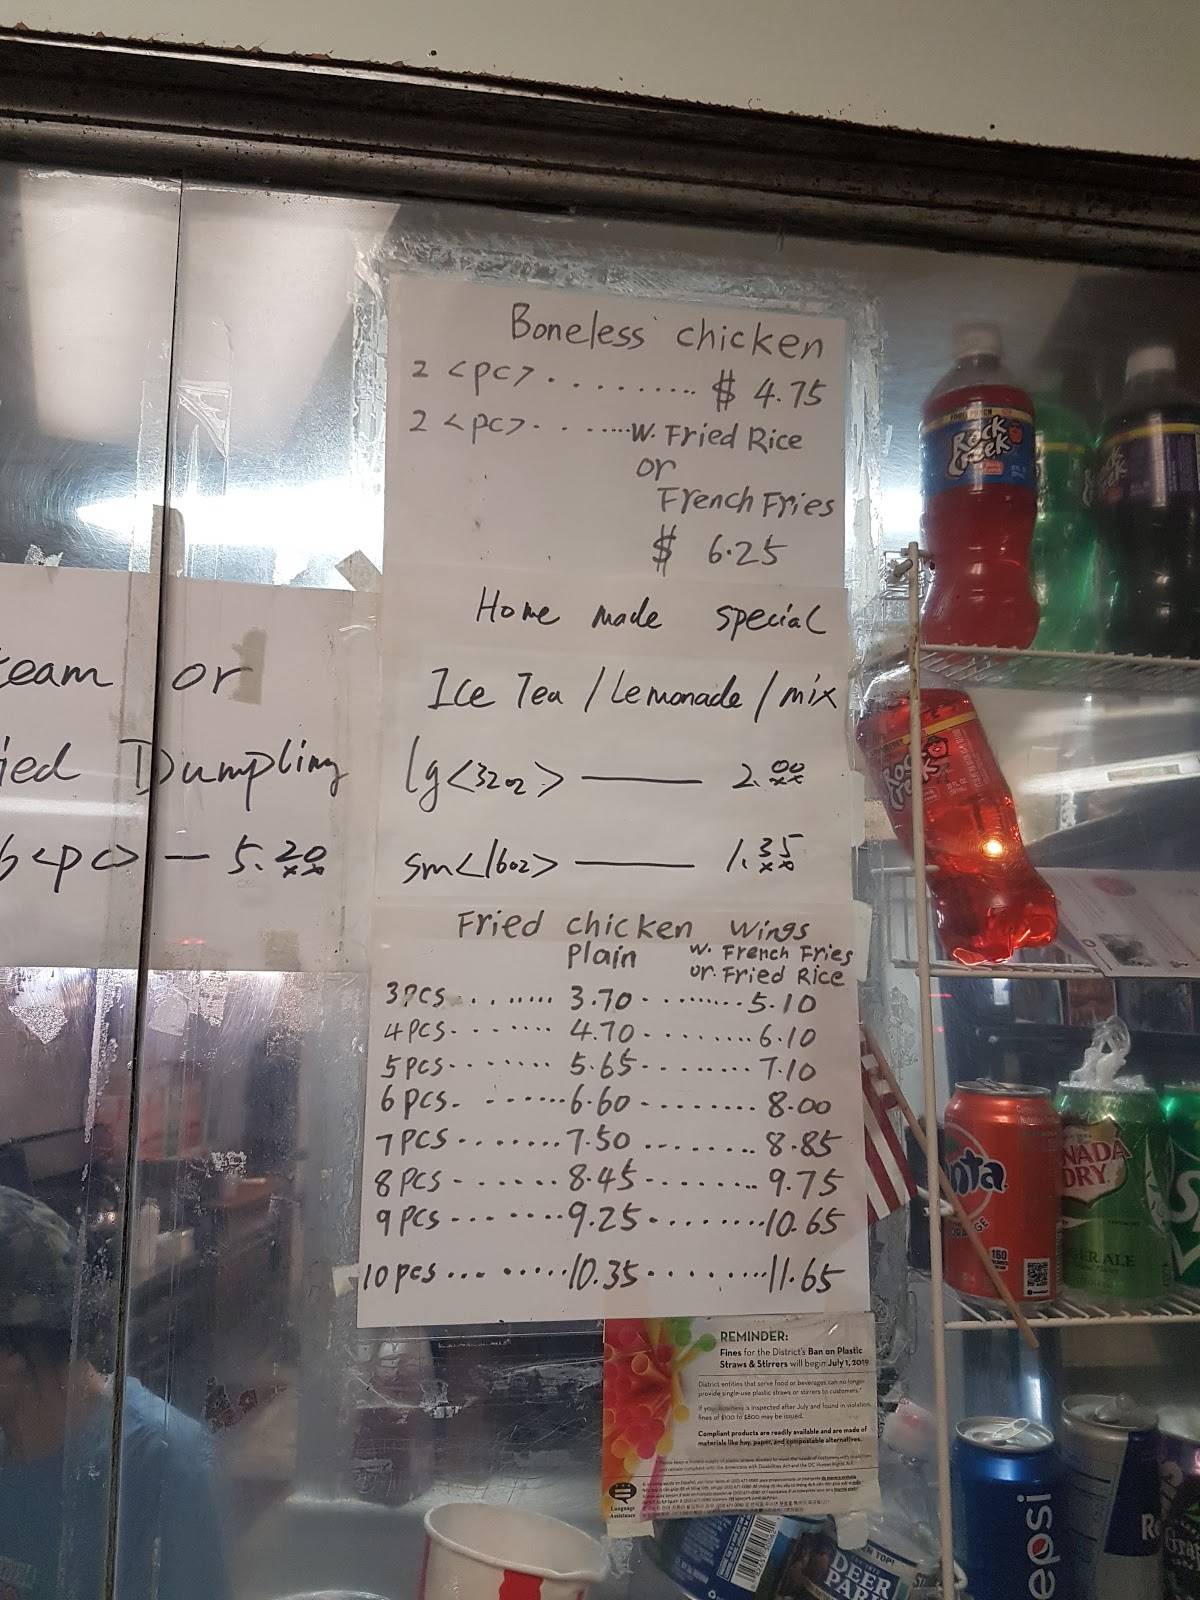 Boneless chicken
2 <pc> . . . . . . . . . . $ 4.75
2 <pc> . . . . . . . W. Fried Rice
or
French Fries
$ 6.25
Home made special
Ice Tea / Lemonade / mix
lg <32oz> —— 2.00
sm <16oz> —— 1.35
Fried chicken wings
Plain
w. French Fries
or. Fried Rice
3PCS . . . . . . . . 3.70 . . . . . . . . 5.10
4PCS . . . . . . . . 4.70 . . . . . . . . 6.10
5PCS . . . . . . . . 5.65 . . . . . . . . 7.10
6PCS . . . . . . . . 6.60 . . . . . . . . 8.00
7PCS . . . . . . . . 7.50 . . . . . . . . 8.85
8PCS . . . . . . . . 8.45 . . . . . . . . 9.75
9PCS . . . . . . . . 9.25 . . . . . . . . 10.65
10pcs . . . . . . . . 10.35 . . . . . . . . 11.65
team or
ied Dumpling
6 <pc> — 5.20
REMINDER:
Fines for the District's Ban on Plastic
Straws & Stirrers will begin July 1, 2019
District entities that serve food or beverages can no longer
provide single-use plastic straws or stirrers to customers.*
If your business is inspected after July and found in violation,
fines of $100 to $800 may be issued.
Compliant products are readily available and are made of
materials like hay, paper, and compostable alternatives.
Language
Assistance
Rock
Creek
Rock
Creek
anta
160
NADA
DRY
GER ALE
epsi
DEER
PARK